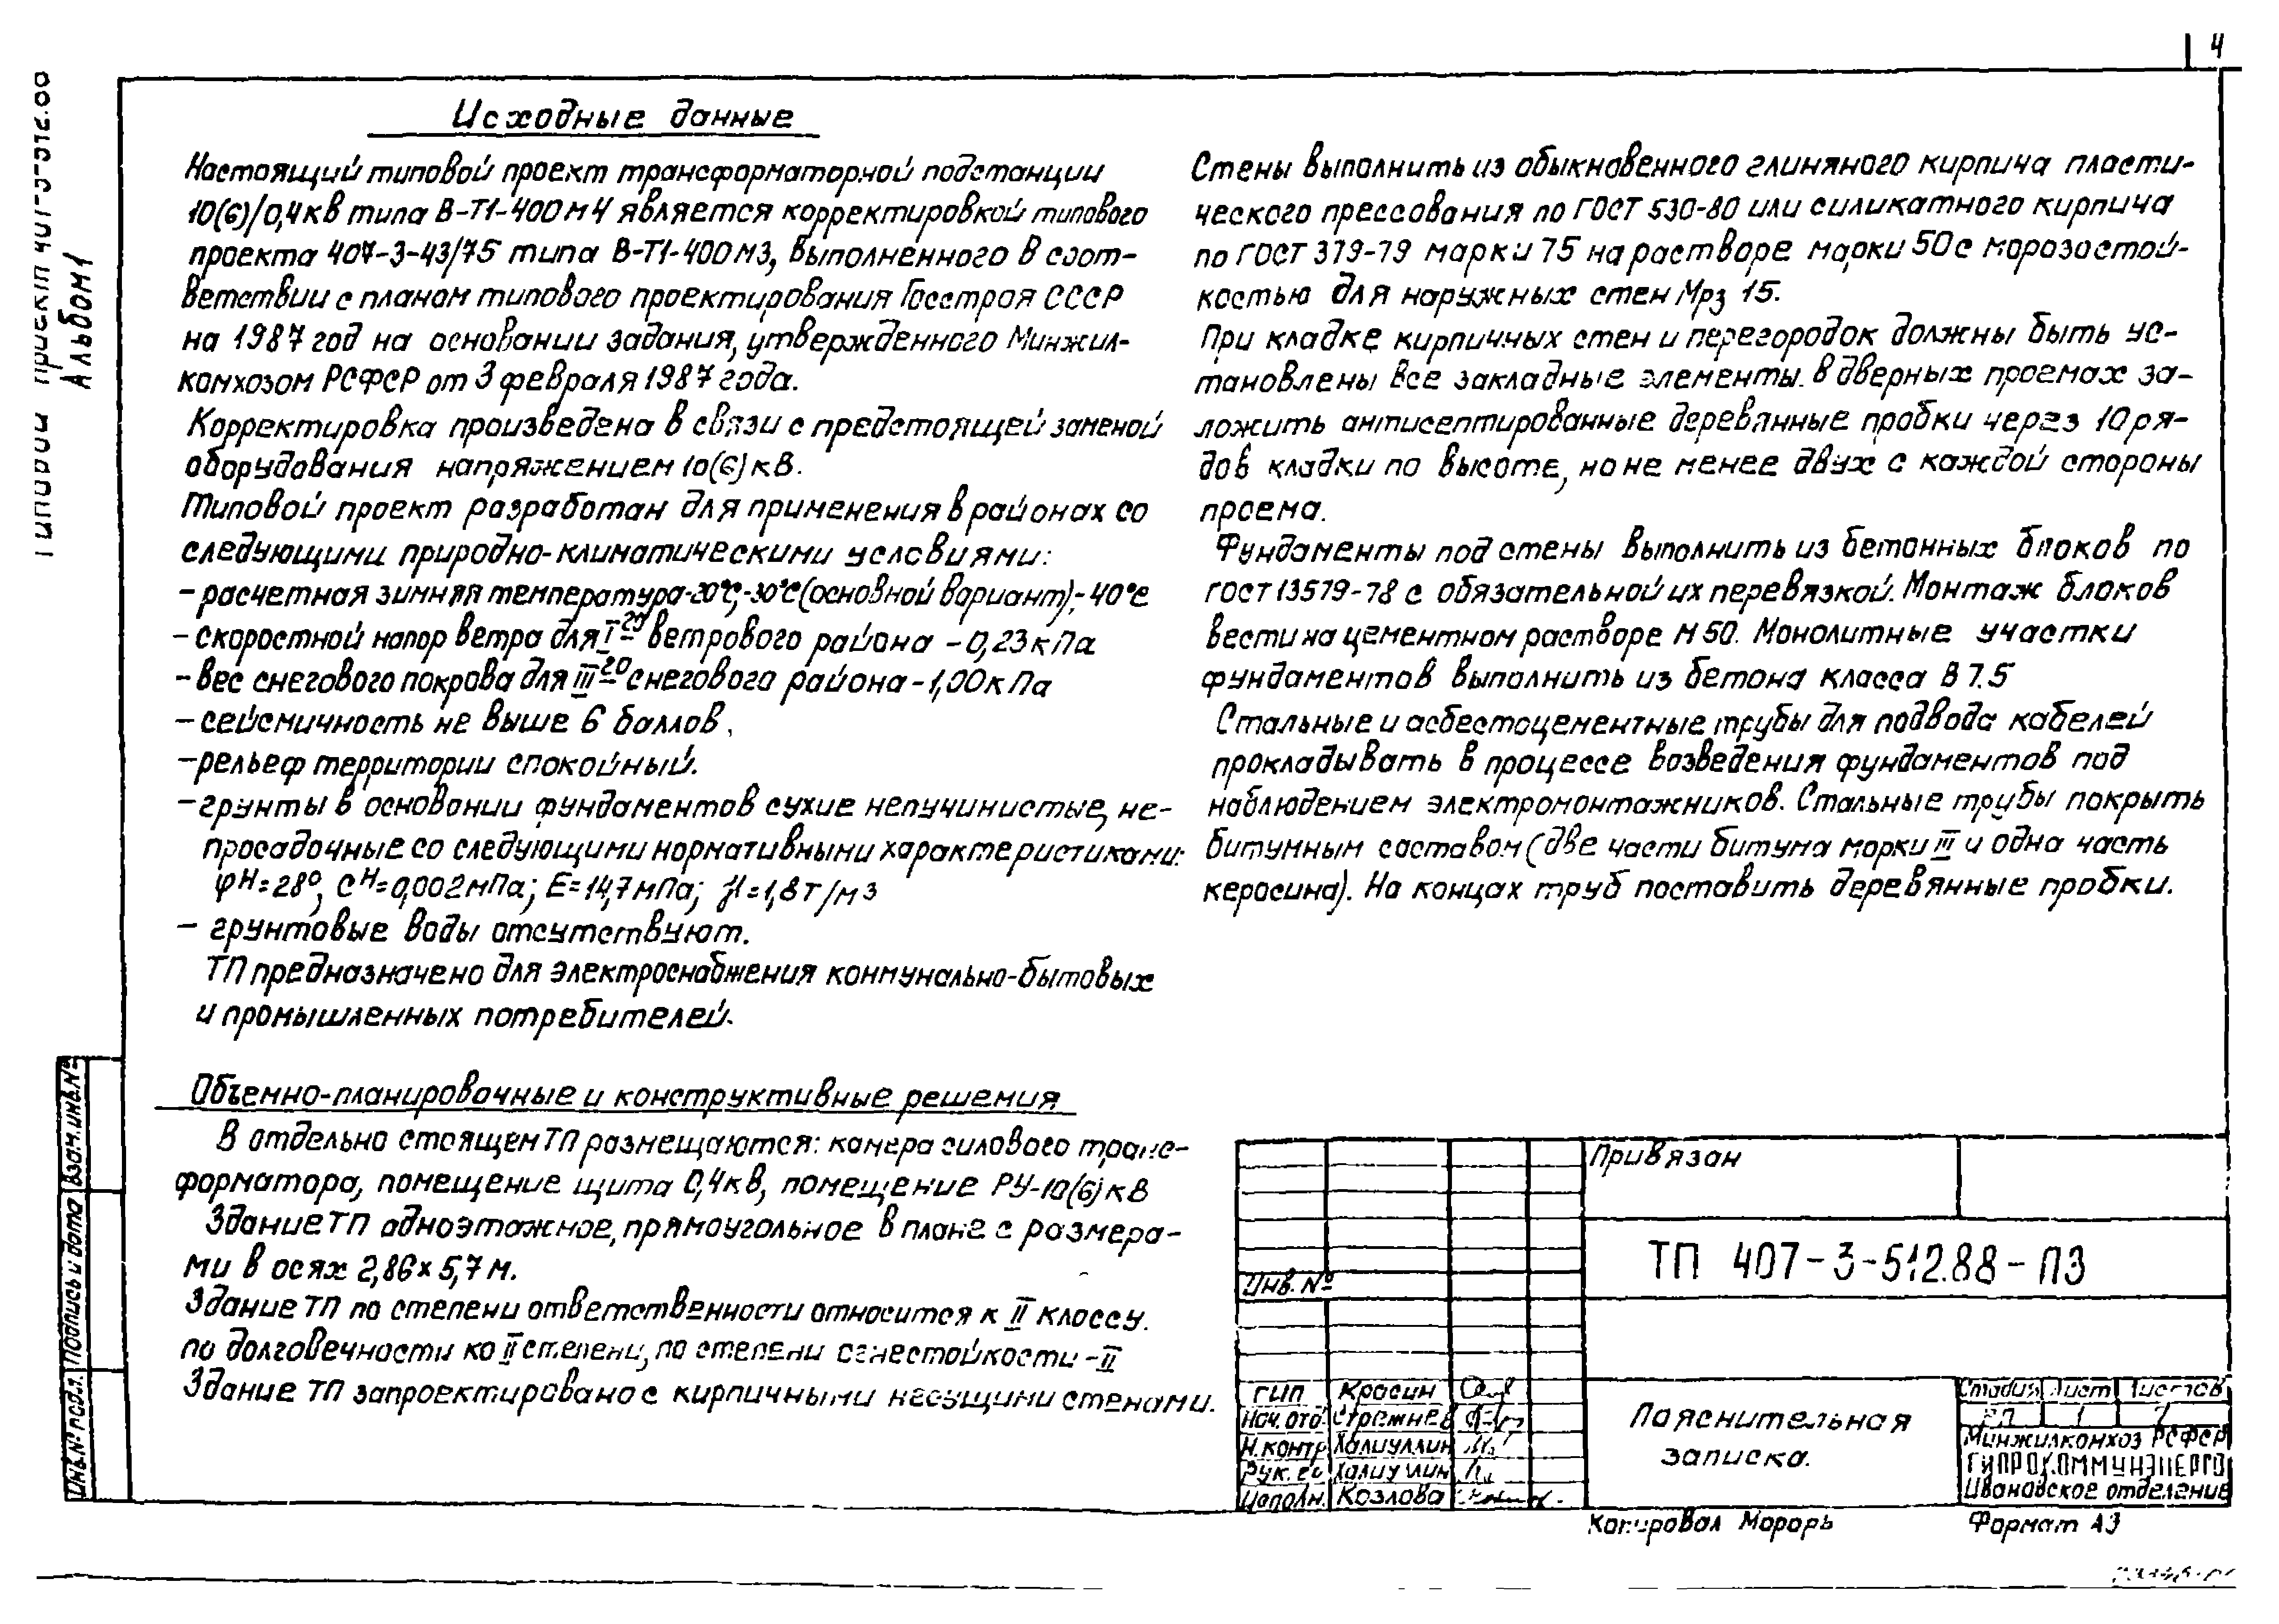 4
Альбом 1
Исходные данные
Настоящий типовой проект трансформаторной подстанции
10(6)/0,4кв типа В-Т1-400м4 является корректировкой типового
проекта 407-3-43/75 типа В-Т1-400м3, выполненного в соот-
ветствии с планом типового проектирования Госстроя СССР
на 1987 год на основании задания, утвержденного Минжил-
комхозом РСФСР от 3 февраля 1987 года.
Корректировка произведена в связи с предстоящей заменой
оборудования напряжением 10(6) кВ.
Типовой проект разработан для применения в районах со
следующими природно-климатическими условиями:
- расчетная зимняя температура-20°С,-30°С (основной вариант);-40°С
- скоростной напор ветра для I го ветрового района - 0,23 кПа
- вес снегового покрова для III го снегового района - 1,00 кПа
- сейсмичность не выше 6 баллов.
- рельеф территории спокойный.
- грунты в основании фундаментов сухие непучинистые, не-
просадочные со следующими нормативными характеристиками:
φн=28°, Сн=0,002мПа; Е=14,7мПа; γ=1,8т/м3
- грунтовые воды отсутствуют.
ТП предназначено для электроснабжения коммунально-бытовых
и промышленных потребителей.
Объемно-планировочные и конструктивные решения
В отдельно стоящем ТП размещаются: камера силового транс-
форматора, помещение щита 0,4кв, помещение РУ-10(6) кВ
Здание ТП одноэтажное, прямоугольное в плане с размера-
ми в осях 2,86 × 5,7 м.
Здание ТП по степени ответственности относится к II классу.
по долговечности ко II степени, по степени огнестойкости - II
Здание ТП запроектировано с кирпичными несущими стенами.
Стены выполнить из обыкновенного глиняного кирпича пласти-
ческого прессования по ГОСТ 530-80 или силикатного кирпича
по ГОСТ 379-79 марки 75 на растворе марки 50 с морозостой-
костью для наружных стен Мрз 15.
При кладке кирпичных стен и перегородок должны быть ус-
тановлены все закладные элементы. В дверных проемах за-
ложить антисептированные деревянные пробки через 10 ря-
дов кладки по высоте, но не менее двух с каждой стороны
проема.
Фундаменты под стены выполнить из бетонных блоков по
ГОСТ 13579-78 с обязательной их перевязкой. Монтаж блоков
вести на цементном растворе М 50. Монолитные участки
фундаментов выполнить из бетона класса В 7.5
Стальные и асбестоцементные трубы для подвода кабелей
прокладывать в процессе возведения фундаментов под
наблюдением электромонтажников. Стальные трубы покрыть
битумным составом (две части битума марки III и одна часть
керосина). На концах труб поставить деревянные пробки.
Взам.инв.№
Подпись и дата
Инв.№ подл.
Привязан
Инв. №
ТП 407-3-512.88-ПЗ
ГИП Красин
Нач. отд. Стрежнев
Н.контр Халиуллин
Рук. Халиуллин
Исполн. Козлова
Пояснительная
записка.
Стадия Лист Листов
РП 1
Минжилкомхоз РСФСР
ГИПРОКОММУНЭНЕРГО
Ивановское отделение
Копировал
Формат А3